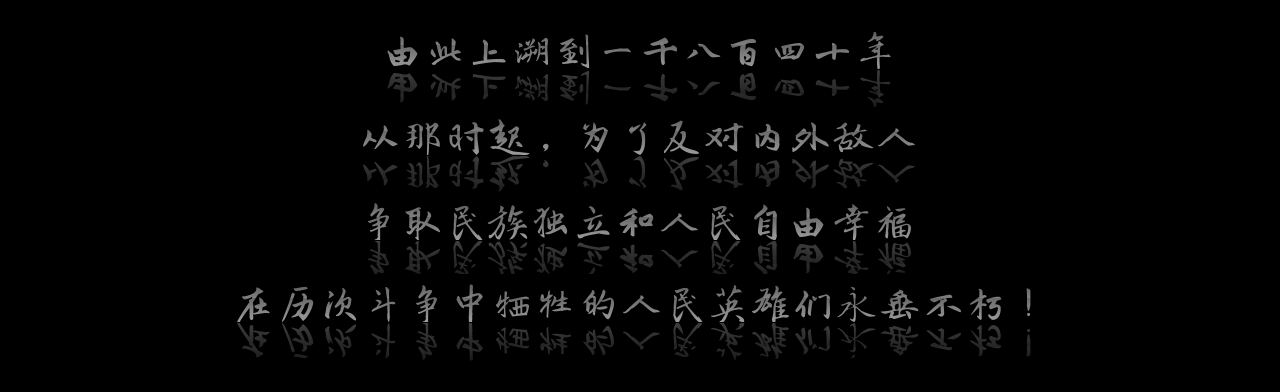 由此上溯到一千八百四十年
从那时起，为了反对内外敌人
争取民族独立和人民自由幸福
在历次斗争中牺牲的人民英雄们永垂不朽！